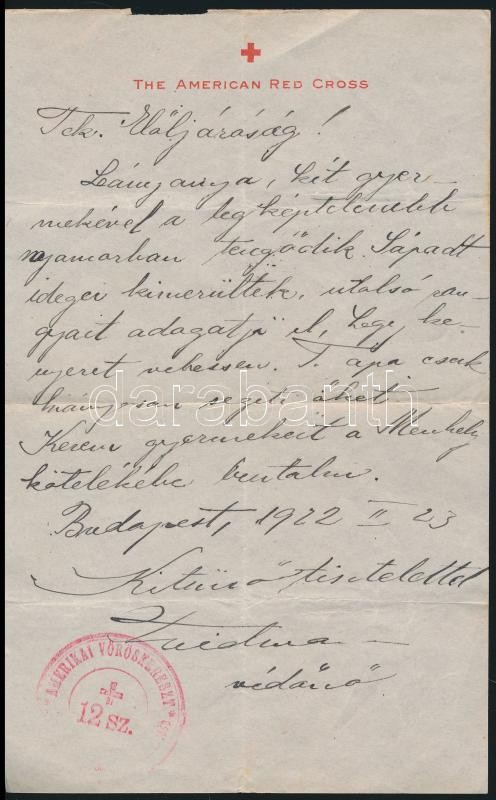 THE AMERICAN RED CROSS
Tek. Elöljáróság!
Leányanya, két gyer-
mekével a legképtelenebb
nyomorban tengődik. Sápadt
idegei kimerültek, utolsó ron-
gyait adogatja el, hogy ke-
nyeret vehessen. T. apa csak
hiányosan segiti őket.
Kérem gyermekeit a Menhely
kötelékébe
Budapest, 1922 II 23
Kitünő tisztelettel
védőnő
AMERIKAI VÖRÖSKERESZT
12 SZ.
darabanth